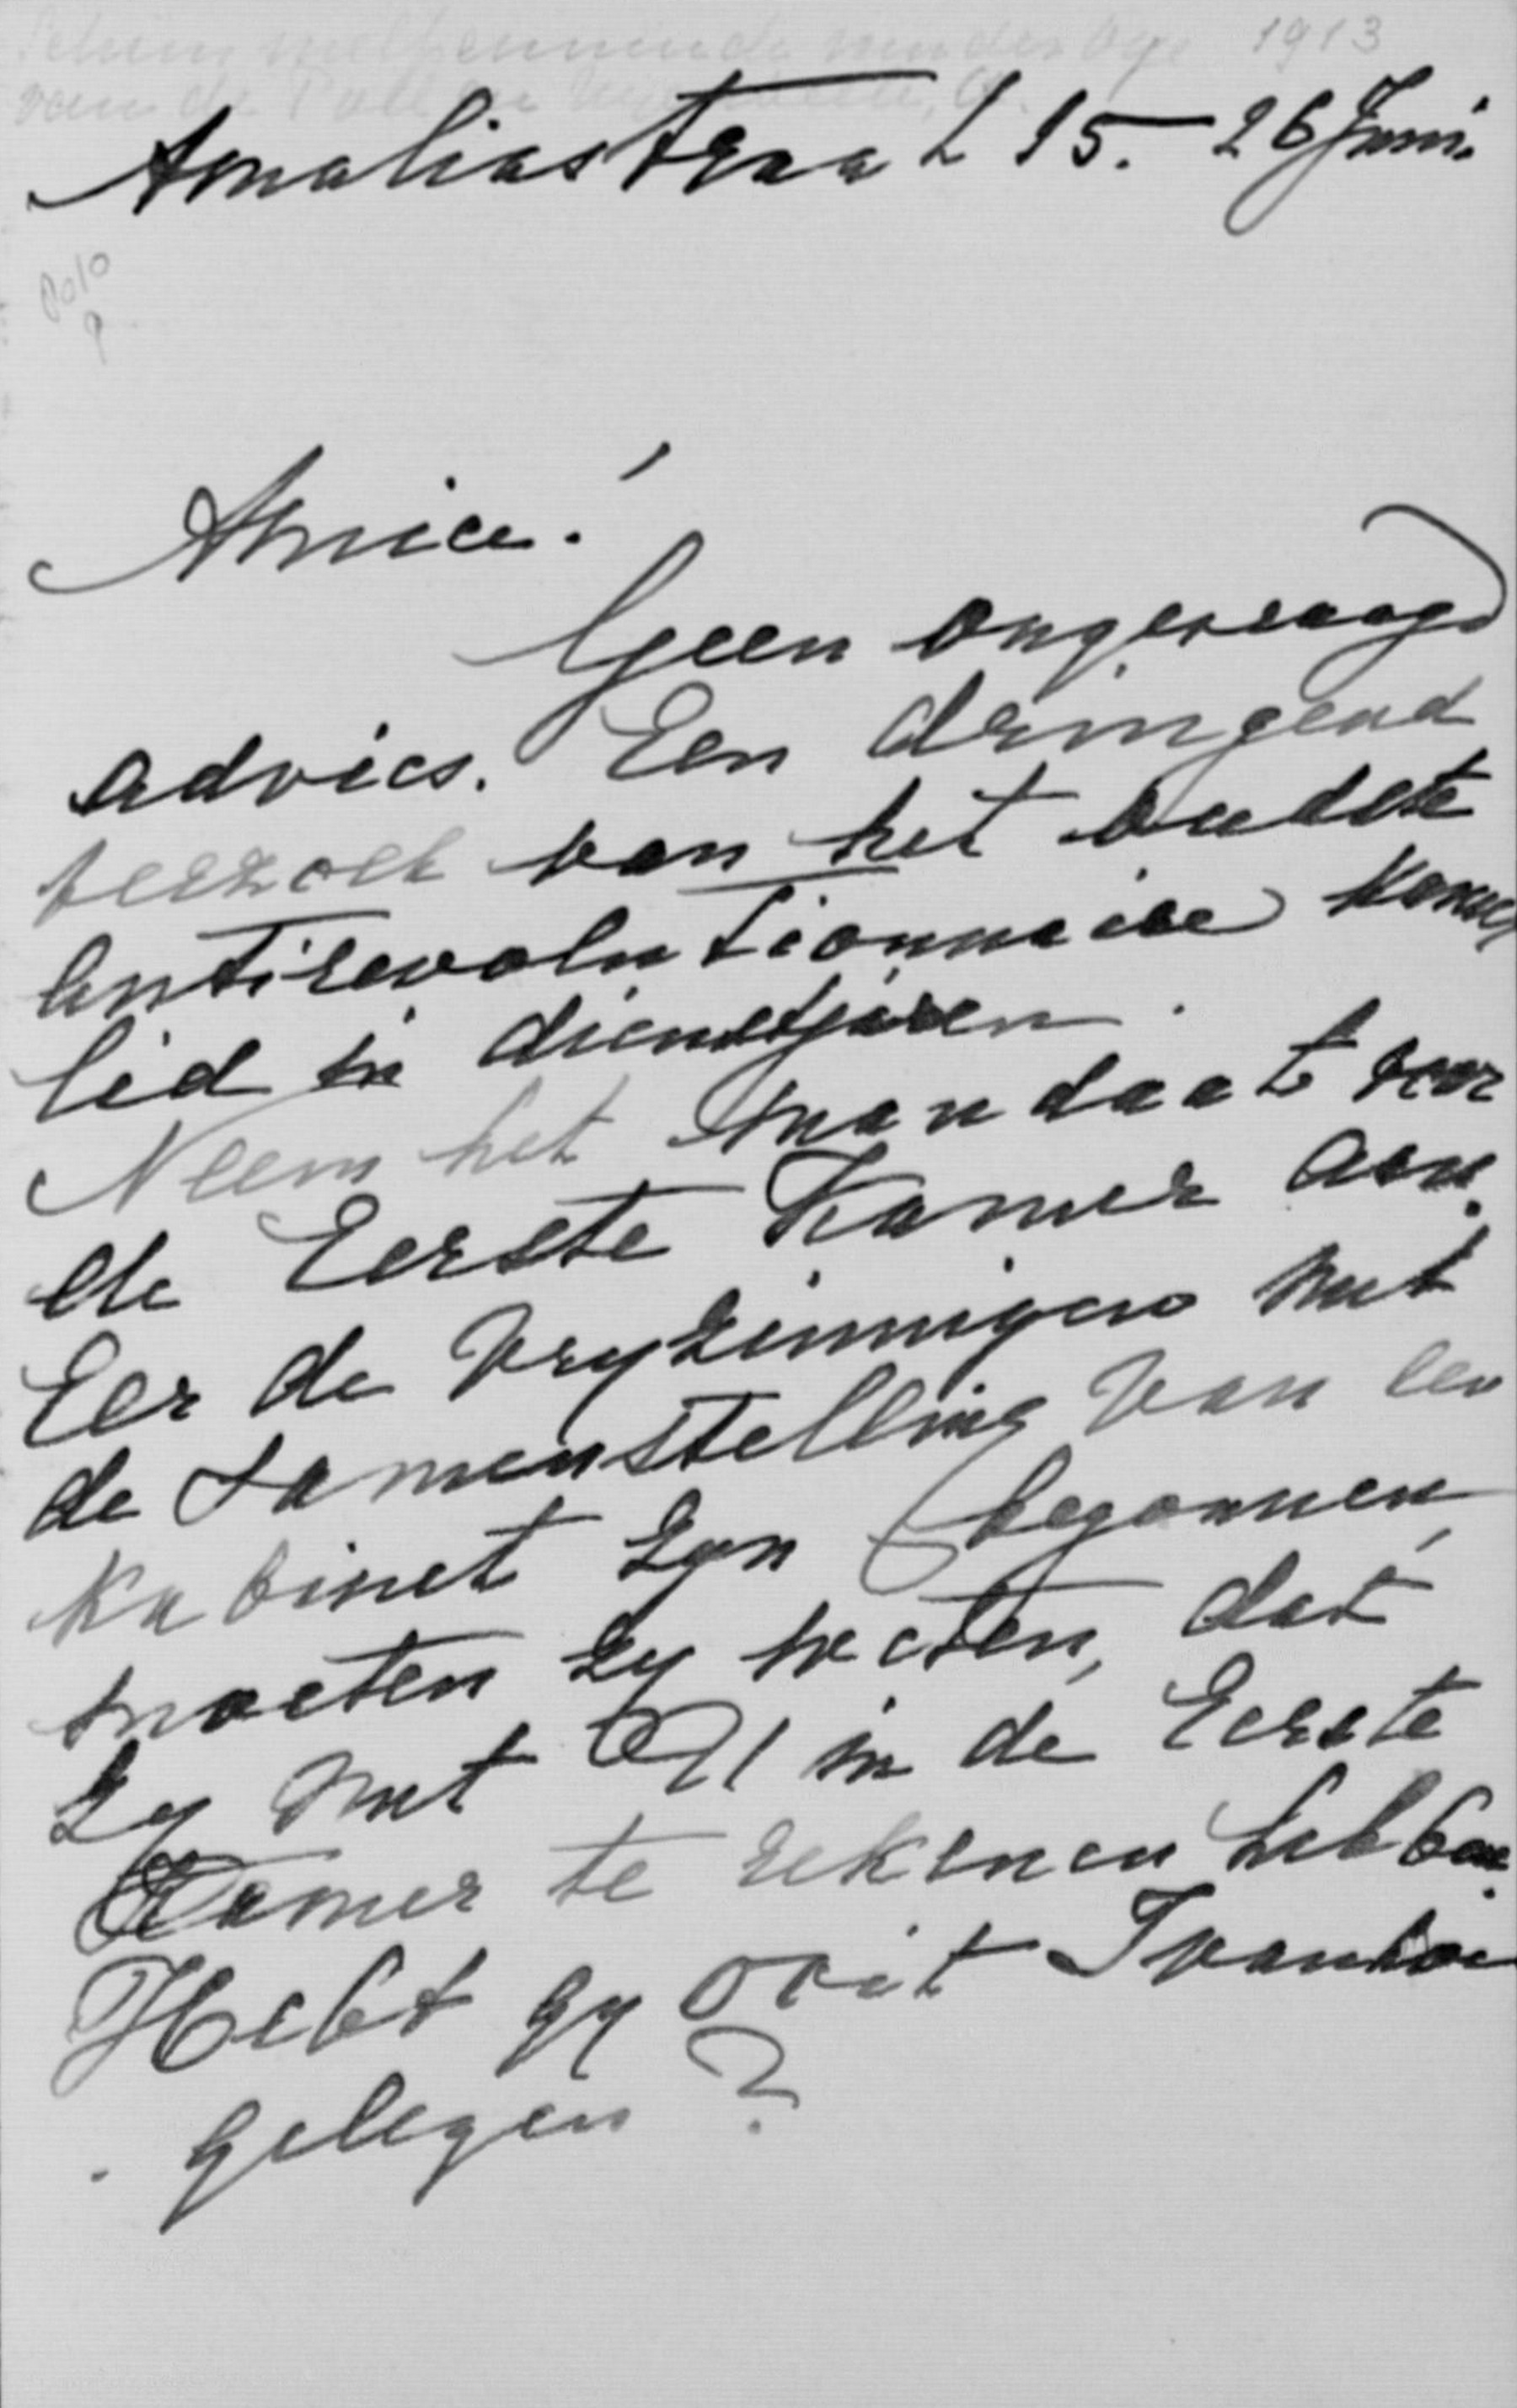 1913
van de Poll
Amaliastraat 15. 26 Juni.
Amice!
Geen ongevraagd
advies. Een dringend
verzoek van het oudste
antirevolutionnaire Kamer
lid in dienstjaren.
Neem het mandaat voor
de Eerste Kamer aan.
Eer de Vryzinnigen met
de samenstelling van een
Kabinet zyn begonnen,
moeten zy weten, dat
zy met U in de Eerste
Kamer te rekenen hebben.
Hebt gy ooit Ivanhoe
gelezen?